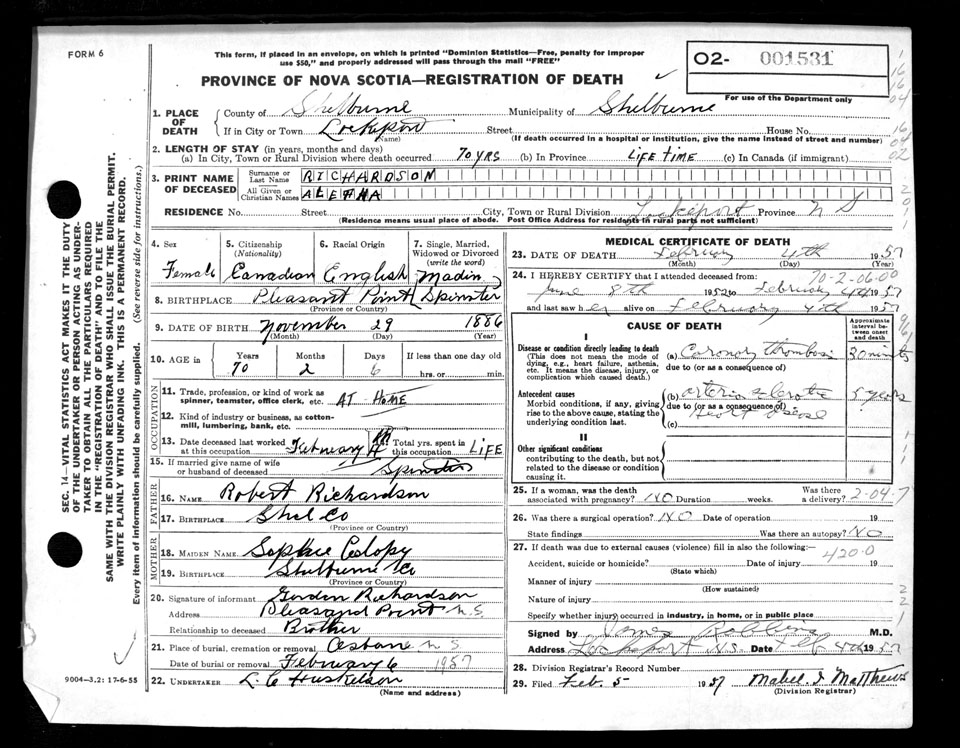 FORM 6
This form, if placed in an envelope, on which is printed "Dominion Statistics—Free, penalty for improper
use $50," and properly addressed will pass through the mail "FREE"
PROVINCE OF NOVA SCOTIA—REGISTRATION OF DEATH
02- 001531
For use of the Department only
1. PLACE OF DEATH
County of Shelburne Municipality of Shelburne
If in City or Town Lockeport Street House No.
(Name) (If death occurred in a hospital or institution, give the name instead of street and number)
2. LENGTH OF STAY (in years, months and days)
(a) In City, Town or Rural Division where death occurred 70 YRS (b) In Province LIFE TIME (c) In Canada (if immigrant)
3. PRINT NAME OF DECEASED
Surname or Last Name RICHARDSON
All Given or Christian Names ALETHA
RESIDENCE No. Street City, Town or Rural Division Lockeport Province N S
(Residence means usual place of abode. Post Office Address for residents in rural parts not sufficient)
4. Sex Female
5. Citizenship (Nationality) Canadian
6. Racial Origin English
7. Single, Married, Widowed or Divorced (write the word) Spinster
8. BIRTHPLACE Pleasant Point
(Province or Country)
9. DATE OF BIRTH November 29 1886
(Month) (Day) (Year)
10. AGE in Years Months Days If less than one day old
70 2 6 hrs. or min.
OCCUPATION
11. Trade, profession, or kind of work as spinner, teamster, office clerk, etc. AT HOME
12. Kind of industry or business, as cotton-mill, lumbering, bank, etc.
13. Date deceased last worked at this occupation February 4th Total yrs. spent in this occupation LIFE
15. If married give name of wife or husband of deceased Spinster
FATHER
16. NAME Robert Richardson
17. BIRTHPLACE Shel Co
(Province or Country)
MOTHER
18. MAIDEN NAME Sophie
19. BIRTHPLACE Shelburne Co
(Province or Country)
20. Signature of informant Gordon Richardson
Address Pleasand Point N.S.
Relationship to deceased Brother
21. Place of burial, cremation or removal N S
Date of burial or removal February 6 1957
22. UNDERTAKER L. C Huskelson
(Name and address)
MEDICAL CERTIFICATE OF DEATH
23. DATE OF DEATH February 4th 1957
(Month) (Day) (Year)
70-2-06.00
24. I HEREBY CERTIFY that I attended deceased from:
June 8th 1952 to February 4th 1957
and last saw her alive on February 4th 1957
CAUSE OF DEATH
Approximate interval between onset and death
I
Disease or condition directly leading to death
(This does not mean the mode of dying, e.g., heart failure, asthenia, etc. It means the disease, injury, or complication which caused death.)
(a) Coronary thrombosis 30 minutes
due to (or as a consequence of)
Antecedent causes
Morbid conditions, if any, giving rise to the above cause, stating the underlying condition last.
(b) arteriosclerotic 5 years
due to (or as a consequence of)
Heart disease
(c)
II
Other significant conditions
contributing to the death, but not related to the disease or condition causing it.
25. If a woman, was the death associated with pregnancy? NO Duration weeks. Was there a delivery? 2-04-7
26. Was there a surgical operation? NO Date of operation 19
State findings Was there an autopsy? NO
27. If death was due to external causes (violence) fill in also the following:—
420.0
Accident, suicide or homicide? Date of injury 19
(State which)
Manner of injury
(How sustained)
Nature of injury
Specify whether injury occurred in industry, in home, or in public place
Signed by Robbins M.D.
Address Lockeport N.S. Date Feb 4th 1957
28. Division Registrar's Record Number
29. Filed Feb. 5 1957 Mabel I Matthews
(Division Registrar)
9004—3.2: 17-6-55
SEC. 14—VITAL STATISTICS ACT MAKES IT THE DUTY
OF THE UNDERTAKER OR PERSON ACTING AS UNDER-
TAKER TO OBTAIN ALL THE PARTICULARS REQUIRED
IN THE "REGISTRATION OF DEATH" AND TO FILE THE
SAME WITH THE DIVISION REGISTRAR WHO SHALL ISSUE THE BURIAL PERMIT.
WRITE PLAINLY WITH UNFADING INK. THIS IS A PERMANENT RECORD.
Every item of information should be carefully supplied. (See reverse side for instructions.)